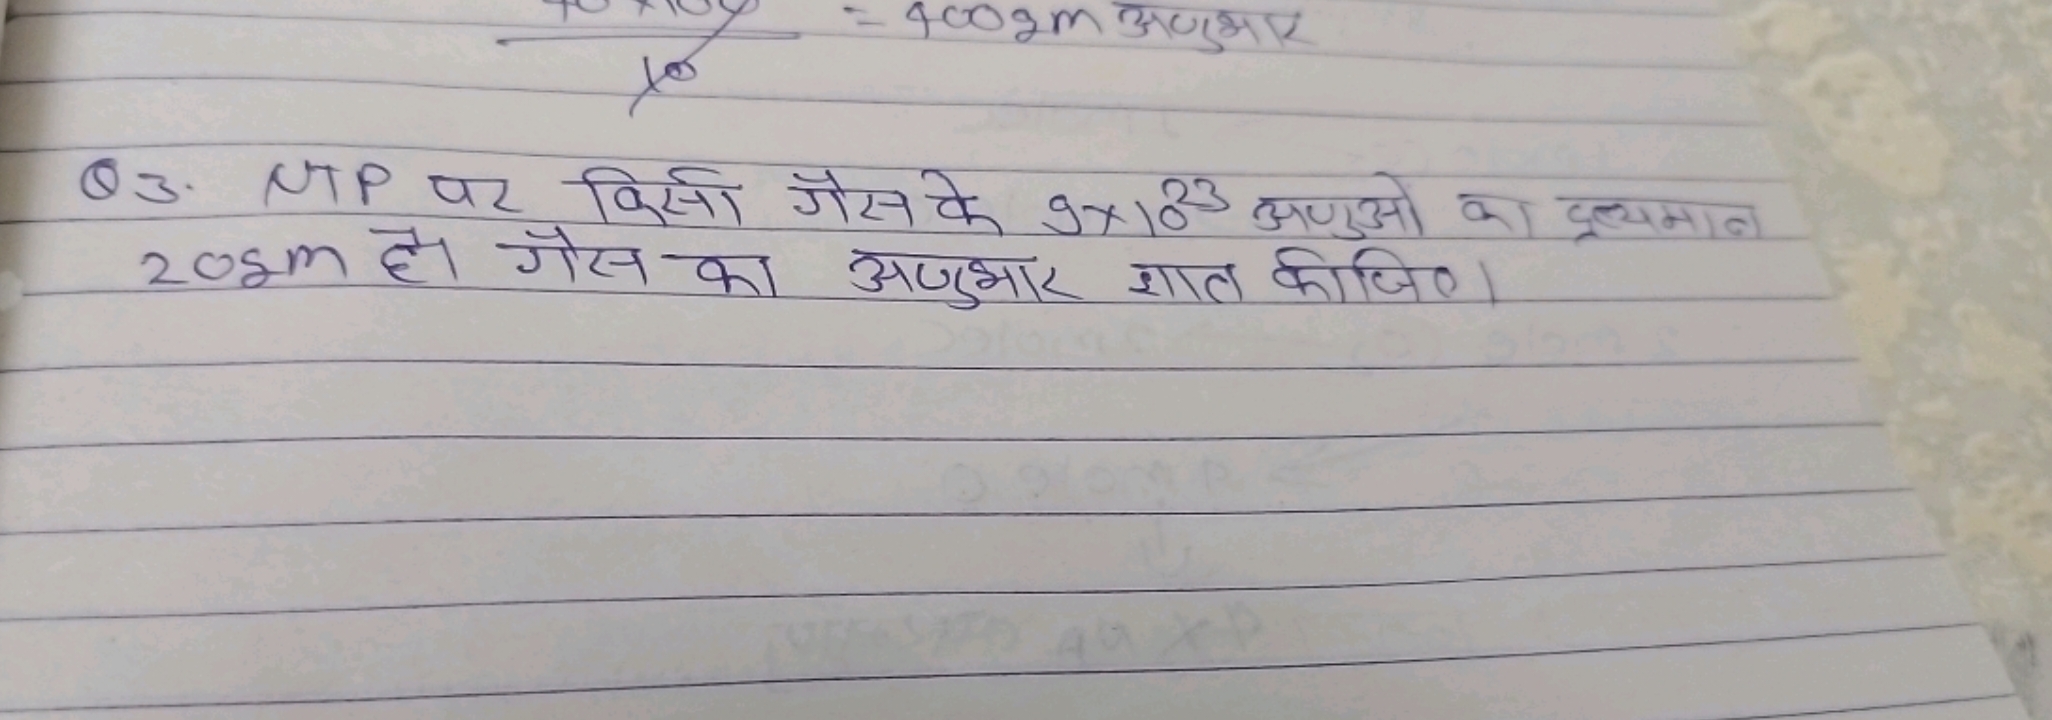 = 400gm अणुभार
10
Q3. NTP पर किसी गैस के 9×10²³ अणुओ का द्रव्यमान
20gm है। गैस का अणुभार ज्ञात कीजिए।